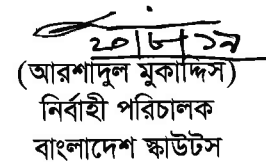 ২০।৮।১৯
(আরশাদুল মুকাদ্দিস)
নির্বাহী পরিচালক
বাংলাদেশ স্কাউটস